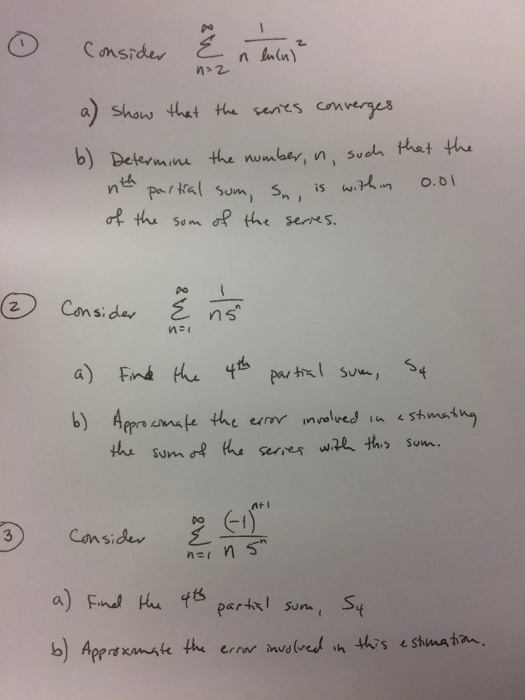 ① Consider ∞ Σ n=2 1 / n ln(n)²
a) Show that the series converges
b) Determine the number, n, such that the
nth partial sum, Sn, is within 0.01
of the sum of the series.
② Consider ∞ Σ n=1 1 / n5ⁿ
a) Find the 4th partial sum, S4
b) Approximate the error involved in estimating
the sum of the series with this sum.
③ Consider ∞ Σ n=1 (-1)ⁿ⁺¹ / n 5ⁿ
a) Find the 4th partial sum, S4
b) Approximate the error involved in this estimation.